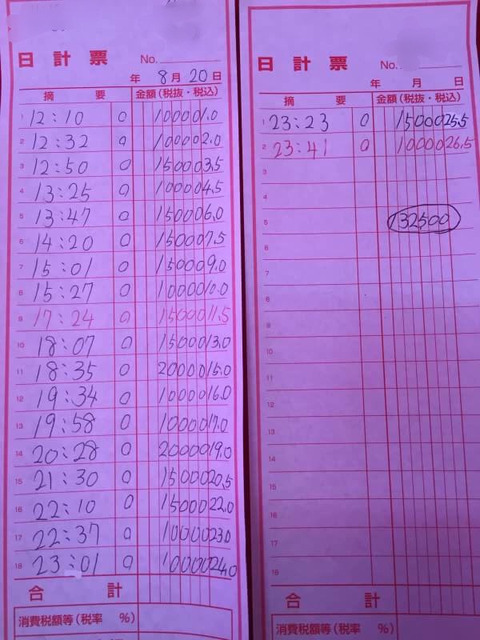 日計票
No.
年 8月 20日
摘要 金額(税抜・税込)
1 12:10 0 10000 1.0
2 12:32 0 10000 2.0
3 12:50 0 15000 3.5
4 13:25 0 10000 4.5
5 13:47 0 15000 6.0
6 14:20 0 15000 7.5
7 15:01 0 15000 9.0
8 15:27 0 10000 10.0
9 17:24 0 15000 11.5
10 18:07 0 15000 13.0
11 18:35 0 20000 15.0
12 19:34 0 10000 16.0
13 19:58 0 10000 17.0
14 20:28 0 20000 19.0
15 21:30 0 15000 20.5
16 22:10 0 15000 22.0
17 22:37 0 10000 23.0
18 23:01 0 10000 24.0
合計
消費税額等(税率 %)
日計票
No.
年 月 日
摘要 金額(税抜・税込)
1 23:23 0 15000 25.5
2 23:41 0 10000 26.5
3
4
5 132500
6
7
8
9
10
11
12
13
14
15
16
17
18
合計
消費税額等(税率 %)